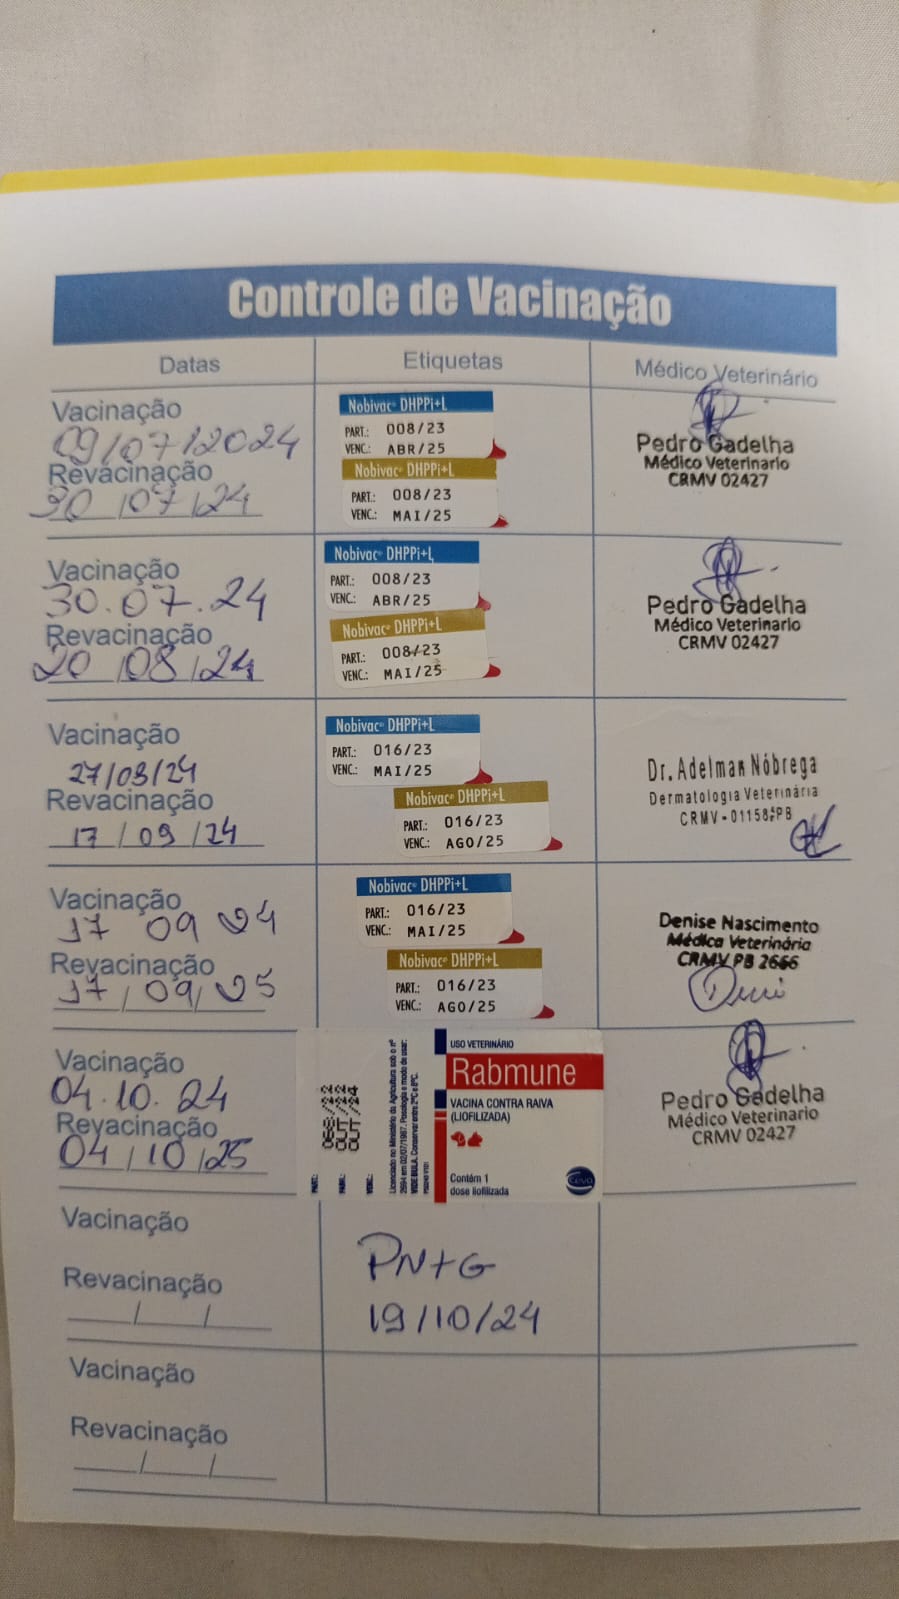 Controle de Vacinação
Datas
Etiquetas
Médico Veterinário
Vacinação
09/07/2024
Revacinação
30/07/24
Nobivac® DHPPi+L
PART.: 008/23
VENC.: ABR/25
Nobivac® DHPPi+L
PART.: 008/23
VENC.: MAI/25
Pedro Gadelha
Médico Veterinario
CRMV 02427
Vacinação
30.07.24
Revacinação
20/08/24
Nobivac® DHPPi+L
PART.: 008/23
VENC.: ABR/25
Nobivac® DHPPi+L
PART.: 008/23
VENC.: MAI/25
Pedro Gadelha
Médico Veterinario
CRMV 02427
Vacinação
27/08/24
Revacinação
17/09/24
Nobivac® DHPPi+L
PART.: 016/23
VENC.: MAI/25
Nobivac® DHPPi+L
PART.: 016/23
VENC.: AGO/25
Dr. Adelman Nóbrega
Dermatologia Veterinária
CRMV-01158/PB
Vacinação
17 09 24
Revacinação
17/09/25
Nobivac® DHPPi+L
PART.: 016/23
VENC.: MAI/25
Nobivac® DHPPi+L
PART.: 016/23
VENC.: AGO/25
Denise Nascimento
Médica Veterinária
CRMV PB 2666
Vacinação
04.10.24
Revacinação
04/10/25
PART.:
FABR.:
VENC.:
Licenciado no Ministério da Agricultura sob o nº
2594 em 02/07/1987. Posologia e modo de usar:
VIDE BULA. Conservar entre 2ºC e 8ºC.
USO VETERINÁRIO
Rabmune
VACINA CONTRA RAIVA
(LIOFILIZADA)
Contém 1
dose liofilizada
CEVA
Pedro Gadelha
Médico Veterinario
CRMV 02427
Vacinação
Revacinação
PN+G
19/10/24
Vacinação
Revacinação